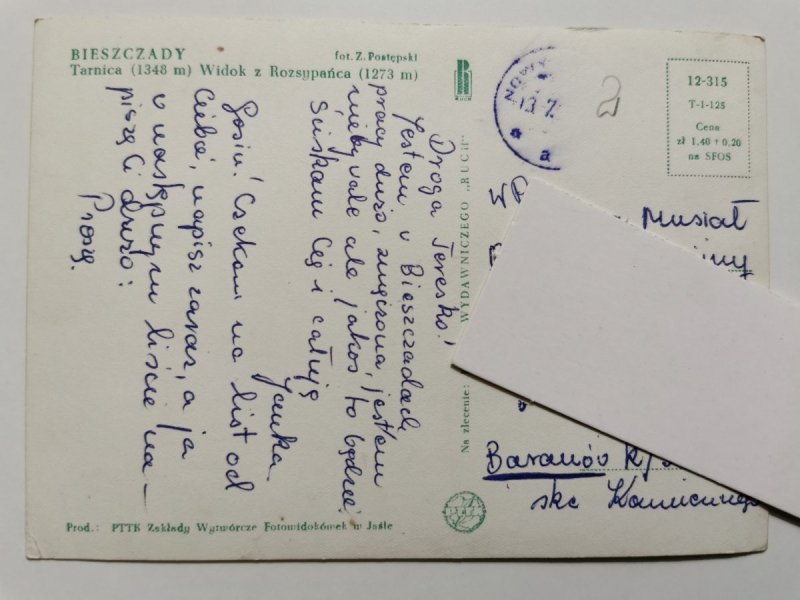 BIESZCZADY
fot. Z. Postępski
Tarnica (1348 m) Widok z Rozsypańca (1273 m)
Droga Teresko!
Jestem w Bieszczadach,
pracy dużo, zmęczona jestem
niebywale ale jakoś to będzie!
Ściskam Cię i całuję
Janka.
Gosiu! Czekam na list od
Ciebie, napisz zaraz, a ja
w następnym liście na-
piszę Ci dużo!
Proszę.
Na zlecenie:
WYDAWNICZEGO „RUCH”
NOWY
13.7
a
2
12-315
T-1-125
Cena
zł 1,40 + 0,20
na SFOS
Musiał
Baranów k/
Prod.: PTTK Zakłady Wytwórcze Fotowidokówek w Jaśle